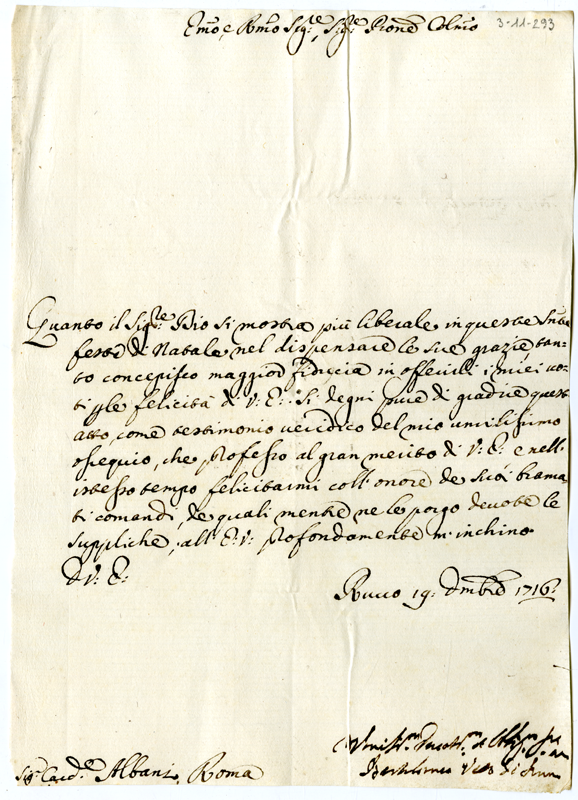 Emo, e Rmo Sig.re, Sig.re Prone Colmo
3-11-293
Quanto il Sig.re Dio si mostra più liberale, in queste Sante
feste di Natale, nel dispensare le sue grazie tan-
to concepisco maggior fiducia in offerirli i miei vo-
ti p le felicità di V: E: Si degni pure di gradire questo
atto, come testimonio veridico del mio umilissimo
ossequio, che professo al gran merito di V: E: e nell'
istesso tempo felicitarmi coll'onore de suoi brama
ti comandi, de quali mentre ne le porgo devote le
suppliche, all'E: V: profondamente m'inchino
D V: E:
Ruvo 19: Dmbre 1716:
Sig.r Card.le Albani, Roma
Umiliss.mo Devott.mo et
Bartolomeo Vesc: di Ruvo